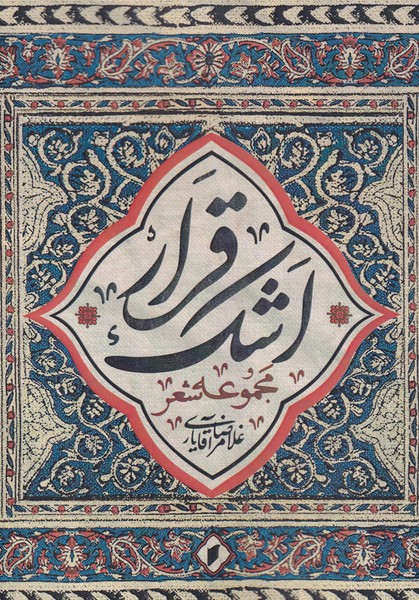 قرار
اشک
مجموعه شعر
غلامرضا آقایاری